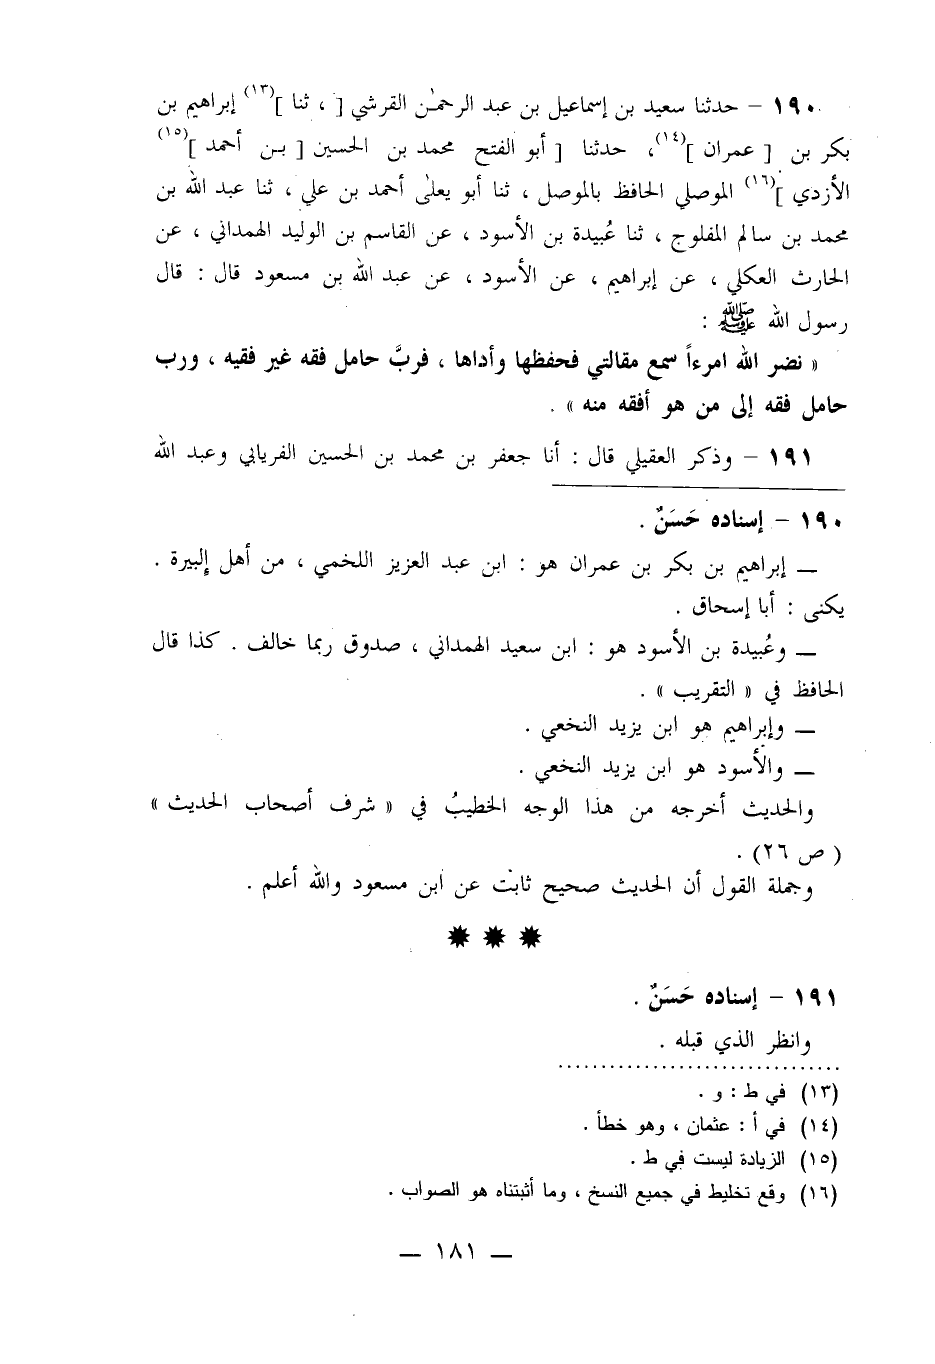 ١٩٠ – حدثنا سعيد بن إسماعيل بن عبد الرحمٰن القرشي [ ، ثنا ](١٣) إبراهيم بن
بكر بن [ عمران ](١٤)، حدثنا [ أبو الفتح محمد بن الحسين [ بن أحمد ](١٥)
الأزدي ](١٦) الموصلي الحافظ بالموصل ، ثنا أبو يعلى أحمد بن علي ، ثنا عبد الله بن
محمد بن سالم المفلوج ، ثنا عُبيدة بن الأسود ، عن القاسم بن الوليد الهمداني ، عن
الحارث العكلي ، عن إبراهيم ، عن الأسود ، عن عبد الله بن مسعود قال : قال
رسول الله ﷺ :
« نضر الله امرءاً سمع مقالتي فحفظها وأداها ، فربَّ حامل فقه غير فقيه ، ورب
حامل فقه إلى من هو أفقه منه » .
١٩١ – وذكر العقيلي قال : أنا جعفر بن محمد بن الحسين الفريابي وعبد الله
١٩٠ – إسناده حَسَنٌ .
— إبراهيم بن بكر بن عمران هو : ابن عبد العزيز اللخمي ، من أهل إلبيرة .
يكنى : أبا إسحاق .
— وعُبيدة بن الأسود هو : ابن سعيد الهمداني ، صدوق ربما خالف . كذا قال
الحافظ في « التقريب » .
— وإبراهيم هو ابن يزيد النخعي .
— والأسود هو ابن يزيد النخعي .
والحديث أخرجه من هذا الوجه الخطيبُ في « شرف أصحاب الحديث »
( ص ٢٦) .
وجملة القول أن الحديث صحيح ثابت عن ابن مسعود والله أعلم .
١٩١ – إسناده حَسَنٌ .
وانظر الذي قبله .
(١٣) في ط : و .
(١٤) في أ : عثمان ، وهو خطأ .
(١٥) الزيادة ليست في ط .
(١٦) وقع تخليط في جميع النسخ ، وما أثبتناه هو الصواب .
— ١٨١ —